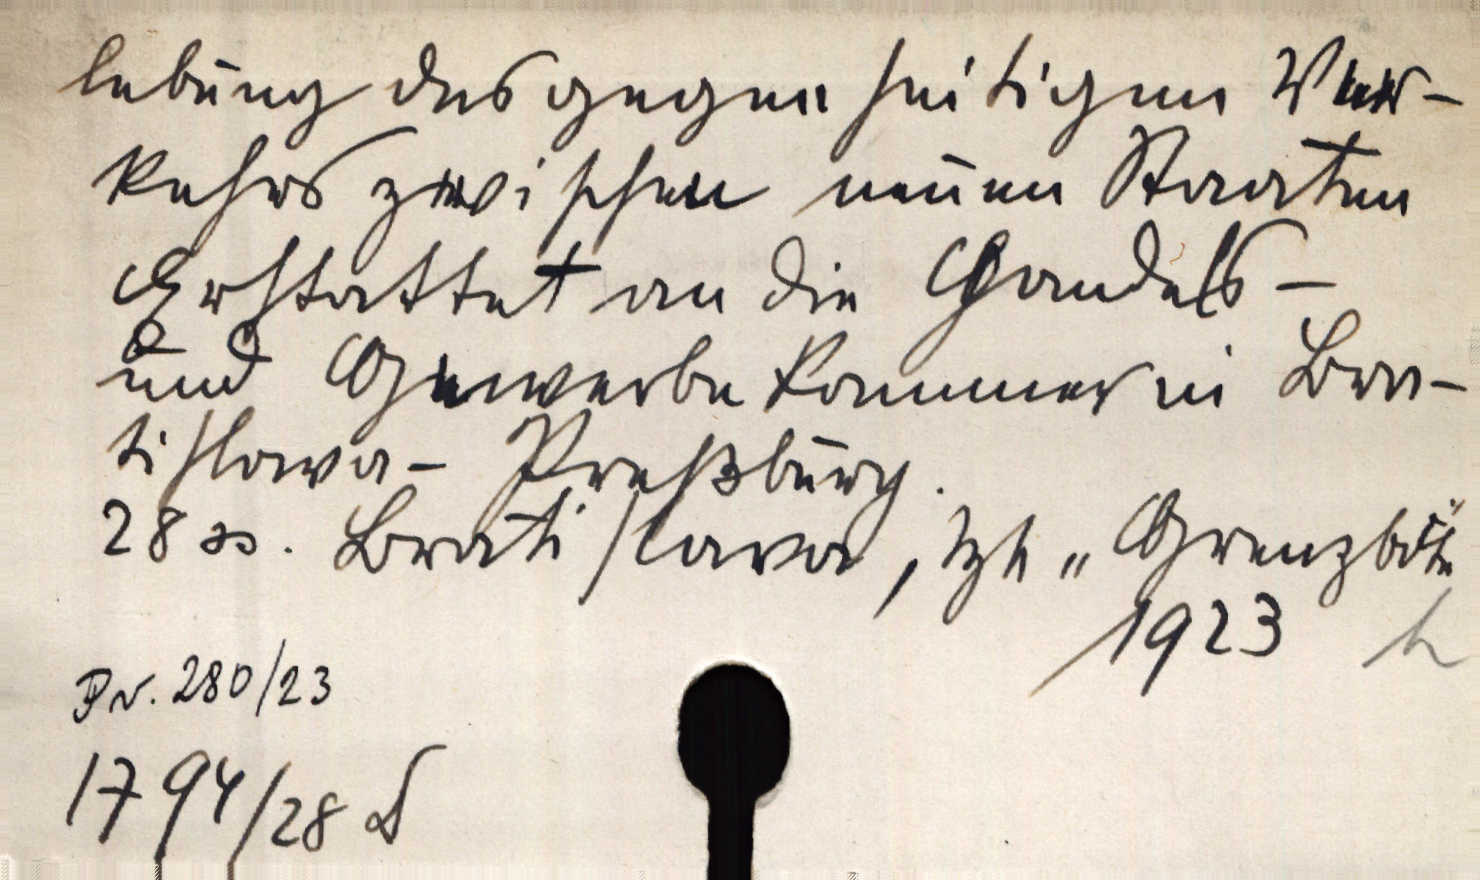 lebung des gegenseitigen Ver-
kehrs zwischen neuen Staaten
Erstattet an die Handels-
und Gewerbekammer in Bra-
tislava-Preßburg.
28 ss. Bratislava, "Grenzbote
1923
Pr. 280/23
1794/28